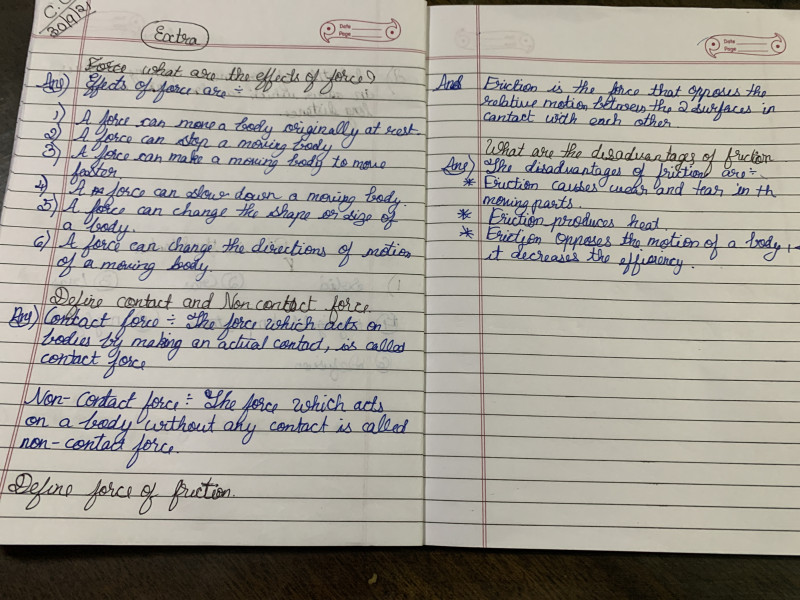 C.C
30/9/21
Extra
Date
Page
Force what are the effects of force?
Ans) Effects of force are ÷
1) A force can move a body originally at rest.
2) A force can stop a moving body
3) A force can make a moving body to move
faster
4) A force can slow down a moving body.
5) A force can change the shape or size of
a body.
6) A force can change the directions of motion
of a moving body.
Define contact and Non contact force.
Ans) Contact force ÷ The force which acts on
bodies by making an actual contact, is called
contact force
Non-Contact force ÷ The force which acts
on a body without any contact is called
non-contact force.
Define force of friction.
Date
Page
Ans Friction is the force that opposes the
relative motion between the 2 surfaces in
contact with each other.
What are the disadvantages of friction
Ans) The disadvantages of friction are ÷
* Friction causes wear and tear in th
moving parts.
* Friction produces heat.
* Friction opposes the motion of a body,
it decreases the efficiency.